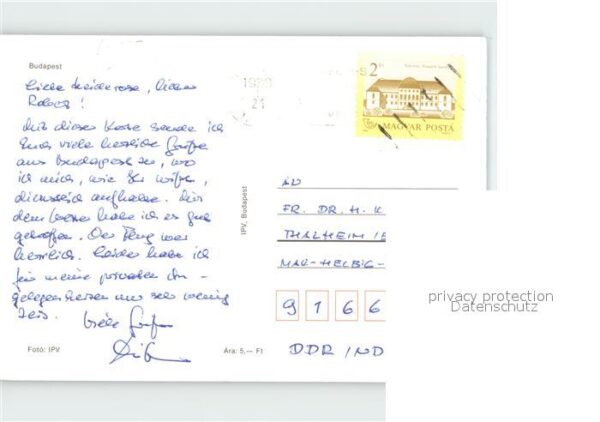 Budapest
Liebe Heiderose, lieber
Robert!
Mit dieser Karte sende ich
Euch viele herzliche Grüße
aus Budapest, wo
ich mich, wie Ihr wißt,
dienstlich aufhalte. Mit
dem Wetter habe ich es gut
getroffen. Der Flug war
herrlich. Leider habe ich
für meine privaten An-
gelegenheiten nur sehr wenig
Zeit.
Viele Grüße
Foto: IPV
Ára: 5,— Ft
IPV, Budapest
21
2 Ft
MAGYAR POSTA
AN
FR. DR. H. K
THALHEIM / E
MAX-HELBIG-
9 1 6 6
DDR / ND
privacy protection
Datenschutz